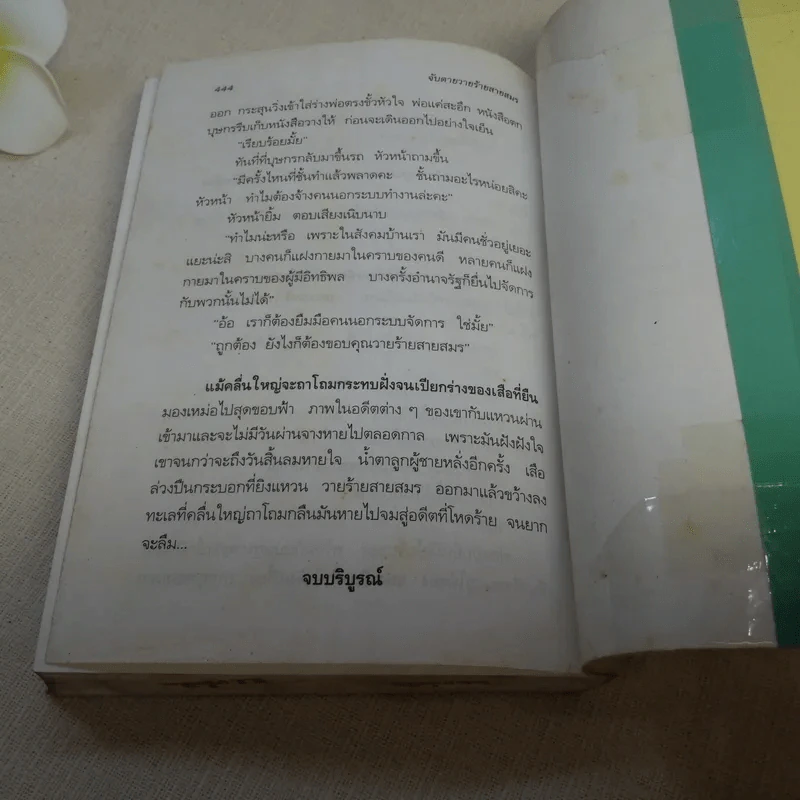 444
จับตายวายร้ายสายสมร
ออก กระสุนวิ่งเข้าใส่ร่างพ่อตรงขั้วหัวใจ พ่อแค่สะอึก หนังสือตก
บุษกรรีบเก็บหนังสือวางให้ ก่อนจะเดินออกไปอย่างใจเย็น
"เรียบร้อยมั้ย"
ทันทีที่บุษกรกลับมาขึ้นรถ หัวหน้าถามขึ้น
"มีครั้งไหนที่ชั้นทำแล้วพลาดคะ ชั้นถามอะไรหน่อยสิคะ
หัวหน้า ทำไมต้องจ้างคนนอกระบบทำงานล่ะคะ"
หัวหน้ายิ้ม ตอบเสียงเนิบนาบ
"ทำไมน่ะหรือ เพราะในสังคมบ้านเรา มันมีคนชั่วอยู่เยอะ
แยะน่ะสิ บางคนก็แฝงกายมาในคราบของคนดี หลายคนก็แฝง
กายมาในคราบของผู้มีอิทธิพล บางครั้งอำนาจรัฐก็ยื่นไปจัดการ
กับพวกนั้นไม่ได้"
"อ้อ เราก็ต้องยืมมือคนนอกระบบจัดการ ใช่มั้ย"
"ถูกต้อง ยังไงก็ต้องขอบคุณวายร้ายสายสมร"
แม้คลื่นใหญ่จะถาโถมกระทบฝั่งจนเปียกร่างของเสือที่ยืน
มองเหม่อไปสุดขอบฟ้า ภาพในอดีตต่าง ๆ ของเขากับแหวนผ่าน
เข้ามาและจะไม่มีวันผ่านจางหายไปตลอดกาล เพราะมันฝังฝังใจ
เขาจนกว่าจะถึงวันสิ้นลมหายใจ น้ำตาลูกผู้ชายหลั่งอีกครั้ง เสือ
ล่วงปืนกระบอกที่ยิงแหวน วายร้ายสายสมร ออกมาแล้วขว้างลง
ทะเลที่คลื่นใหญ่ถาโถมกลืนมันหายไปจมสู่อดีตที่โหดร้าย จนยาก
จะลืม...
จบบริบูรณ์